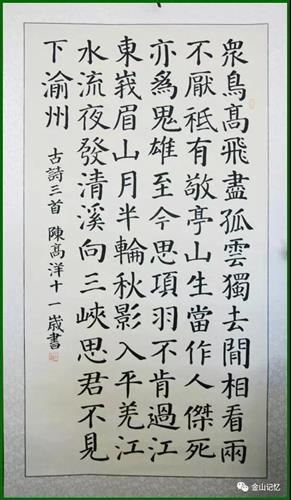 衆鳥髙飛盡孤雲獨去閒相看兩
不厭祗有敬亭山生當作人傑死
亦爲鬼雄至今思項羽不肯過江
東峩眉山月半輪秋影入平羌江
水流夜發清溪向三峽思君不見
下渝州 古詩三首 陳髙洋十一歲書
金山记忆